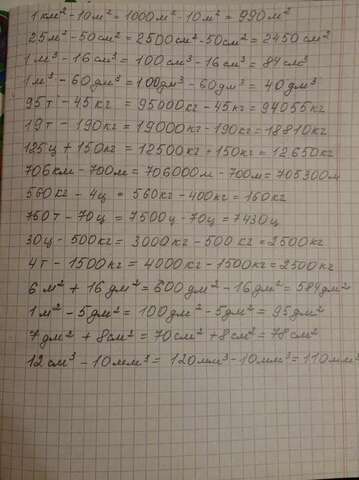 1 км² - 10 м² = 1000 м² - 10 м² = 990 м²
25 м² - 50 см² = 2500 см² - 50 см² = 2450 см²
1 м³ - 16 см³ = 100 см³ - 16 см³ = 84 см³
1 м³ - 60 дм³ = 100 дм³ - 60 дм³ = 40 дм³
95 т - 45 кг = 95000 кг - 45 кг = 94055 кг
19 т - 190 кг = 19000 кг - 190 кг = 18810 кг
125 ц + 150 кг = 12500 кг + 150 кг = 12650 кг
706 км - 700 м = 706000 м - 700 м = 705300 м
560 кг - 4 ц = 560 кг - 400 кг = 160 кг
750 т - 70 ц = 7500 ц - 70 ц = 7430 ц
30 ц - 500 кг = 3000 кг - 500 кг = 2500 кг
4 т - 1500 кг = 4000 кг - 1500 кг = 2500 кг
6 м² + 16 дм² = 600 дм² - 16 дм² = 584 дм²
1 м² - 5 дм² = 100 дм² - 5 дм² = 95 дм²
7 дм² + 8 см² = 70 см² + 8 см² = 78 см²
12 см³ - 10 мм³ = 120 мм³ - 10 мм³ = 110 мм³